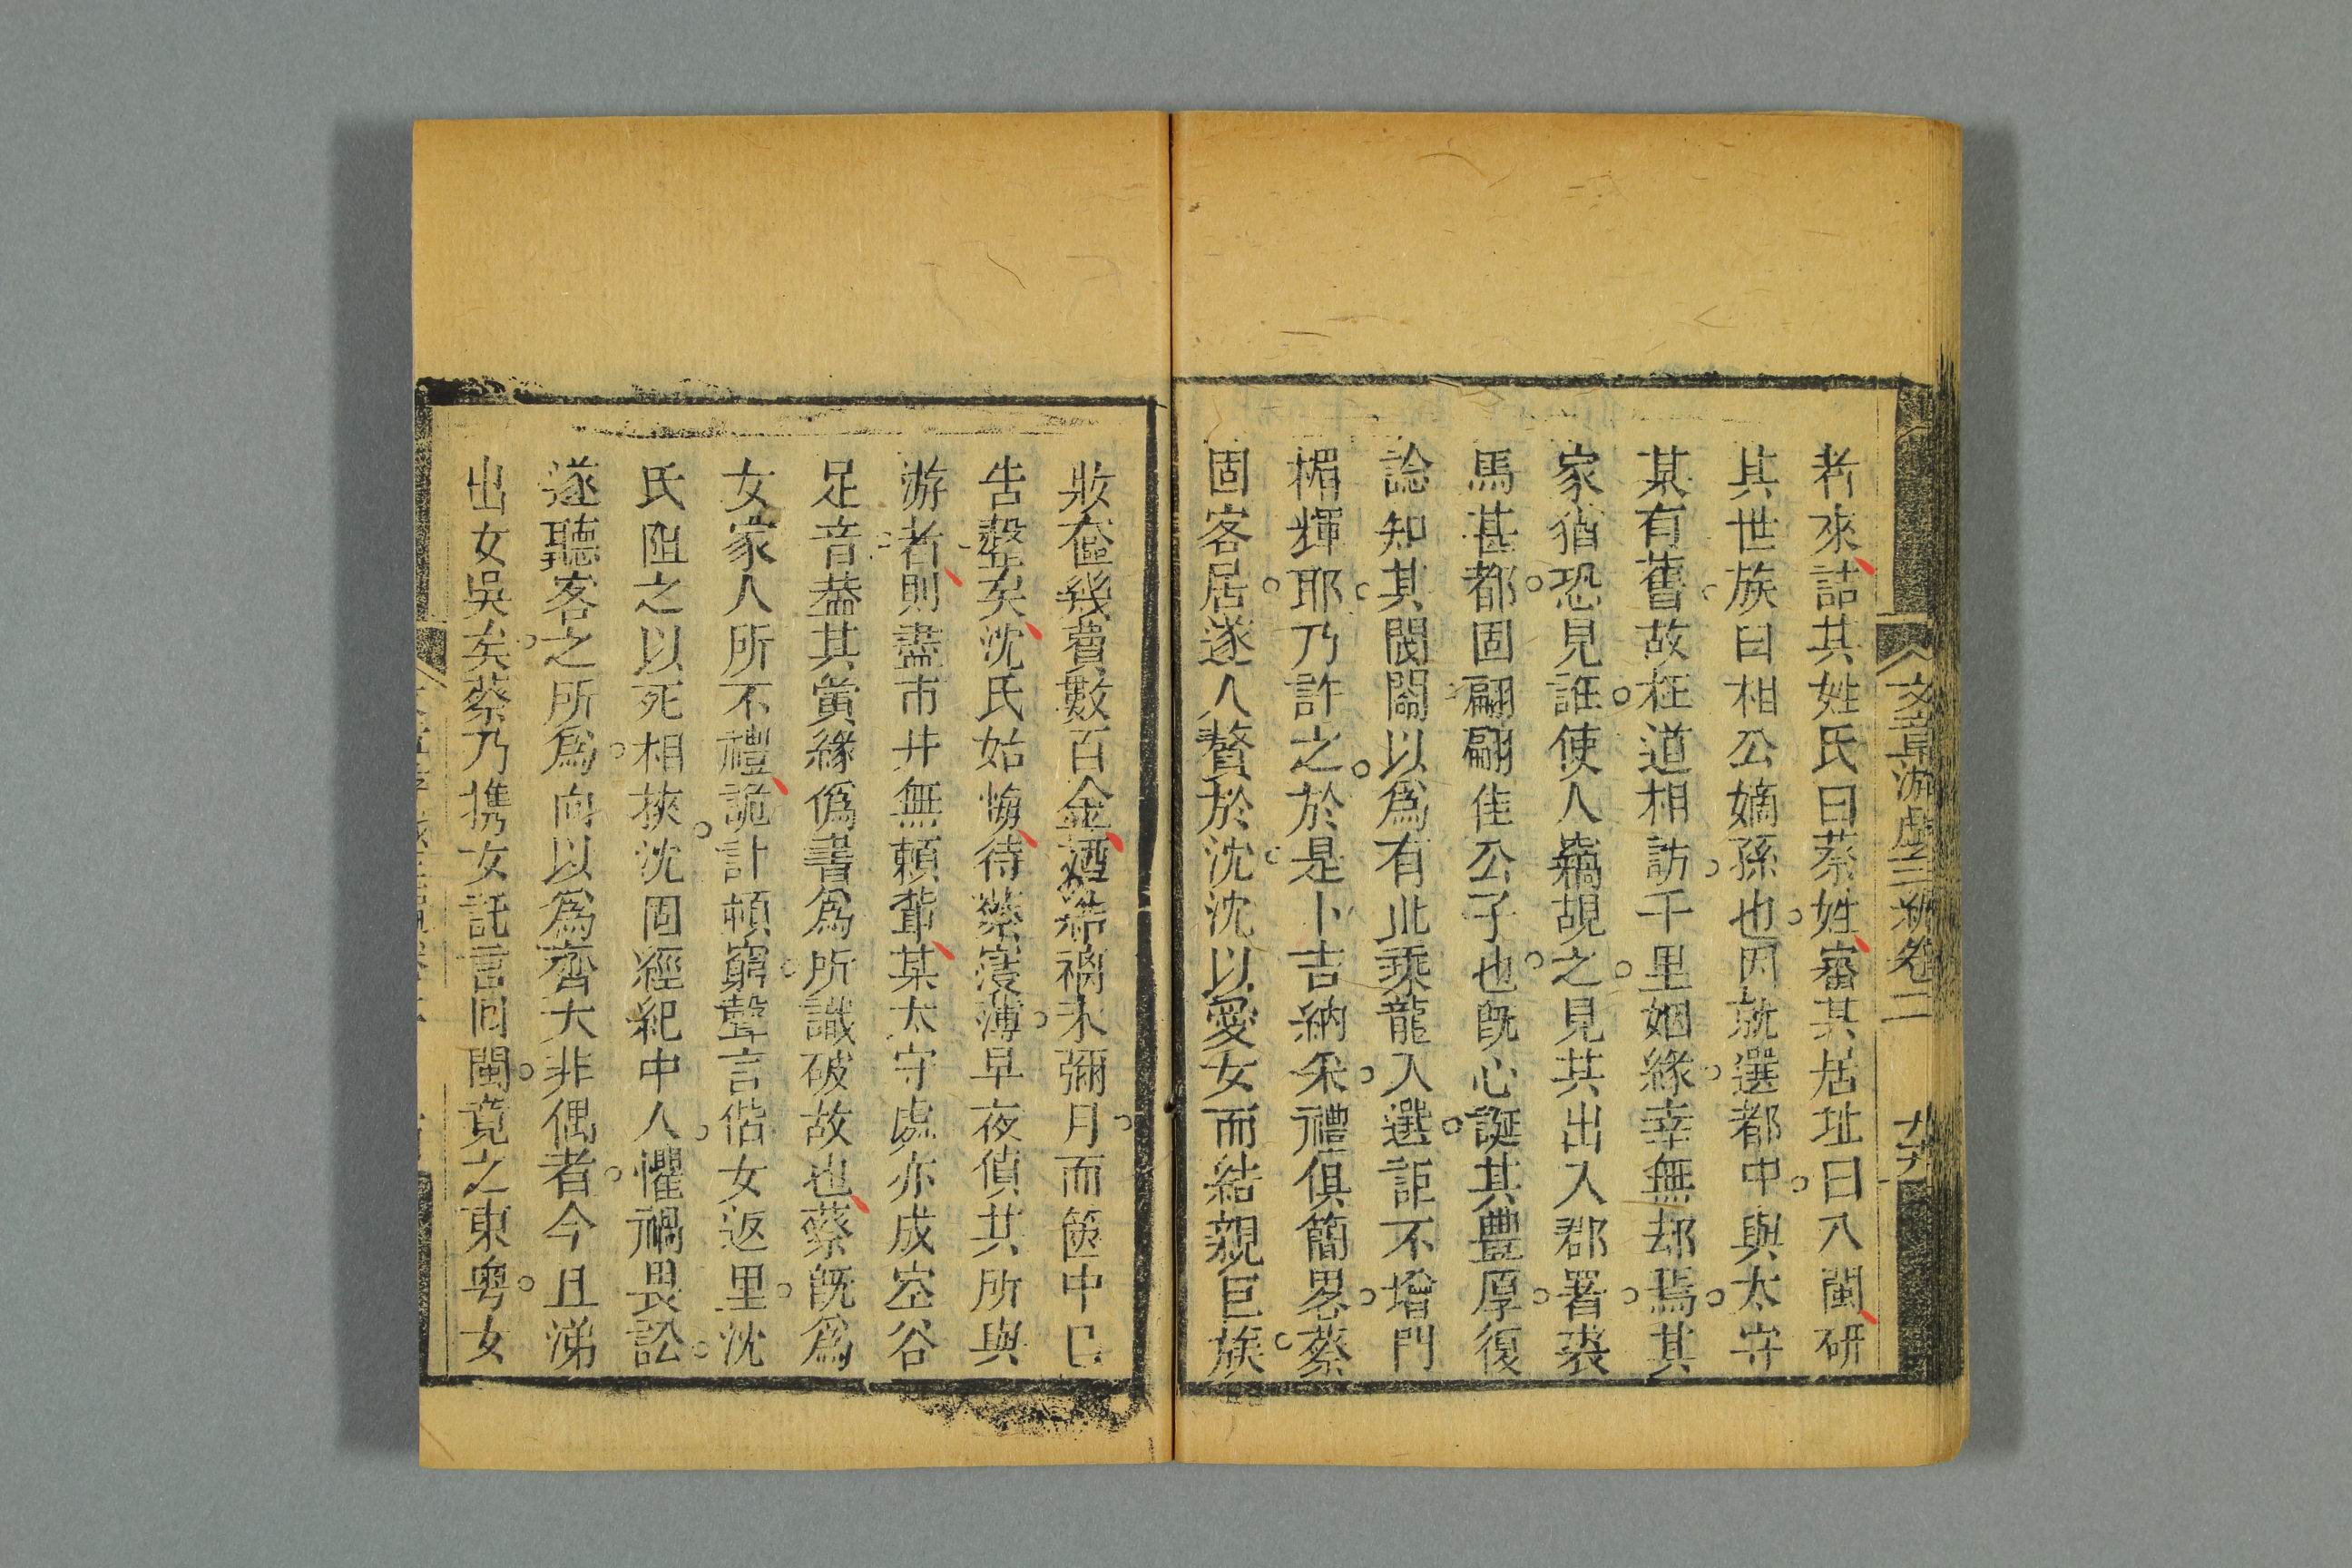 文章游戲三編卷二
者來詰其姓氏曰蔡姓審其居址曰八閩研
其世族曰相公嫡孫也因就選都中與太守
某有舊故枉道相訪千里姻緣幸無却焉其
家猶恐見誑使人竊覘之見其出入郡署裘
馬甚都固翩翩佳公子也旣心誕其豐厚復
諗知其閥閱以爲有此乘龍入選詎不增門
楣輝耶乃許之於是卜吉納采禮俱簡畧蔡
固客居遂入贅於沈沈以愛女而結親巨族
妝奩幾費數百金迺結褵未彌月而篋中已
告罄矣沈氏始悔待蔡寖薄早夜偵其所與
游者則盡市井無賴輩某太守處亦成空谷
足音葢其夤緣僞書爲所識破故也蔡旣爲
女家人所不禮詭計頓窮聲言偕女返里沈
氏阻之以死相挾沈固經紀中人懼禍畏訟
遂聽客之所爲向以爲齊大非偶者今且涕
出女吳矣蔡乃携女託言回閩竟之東粤女